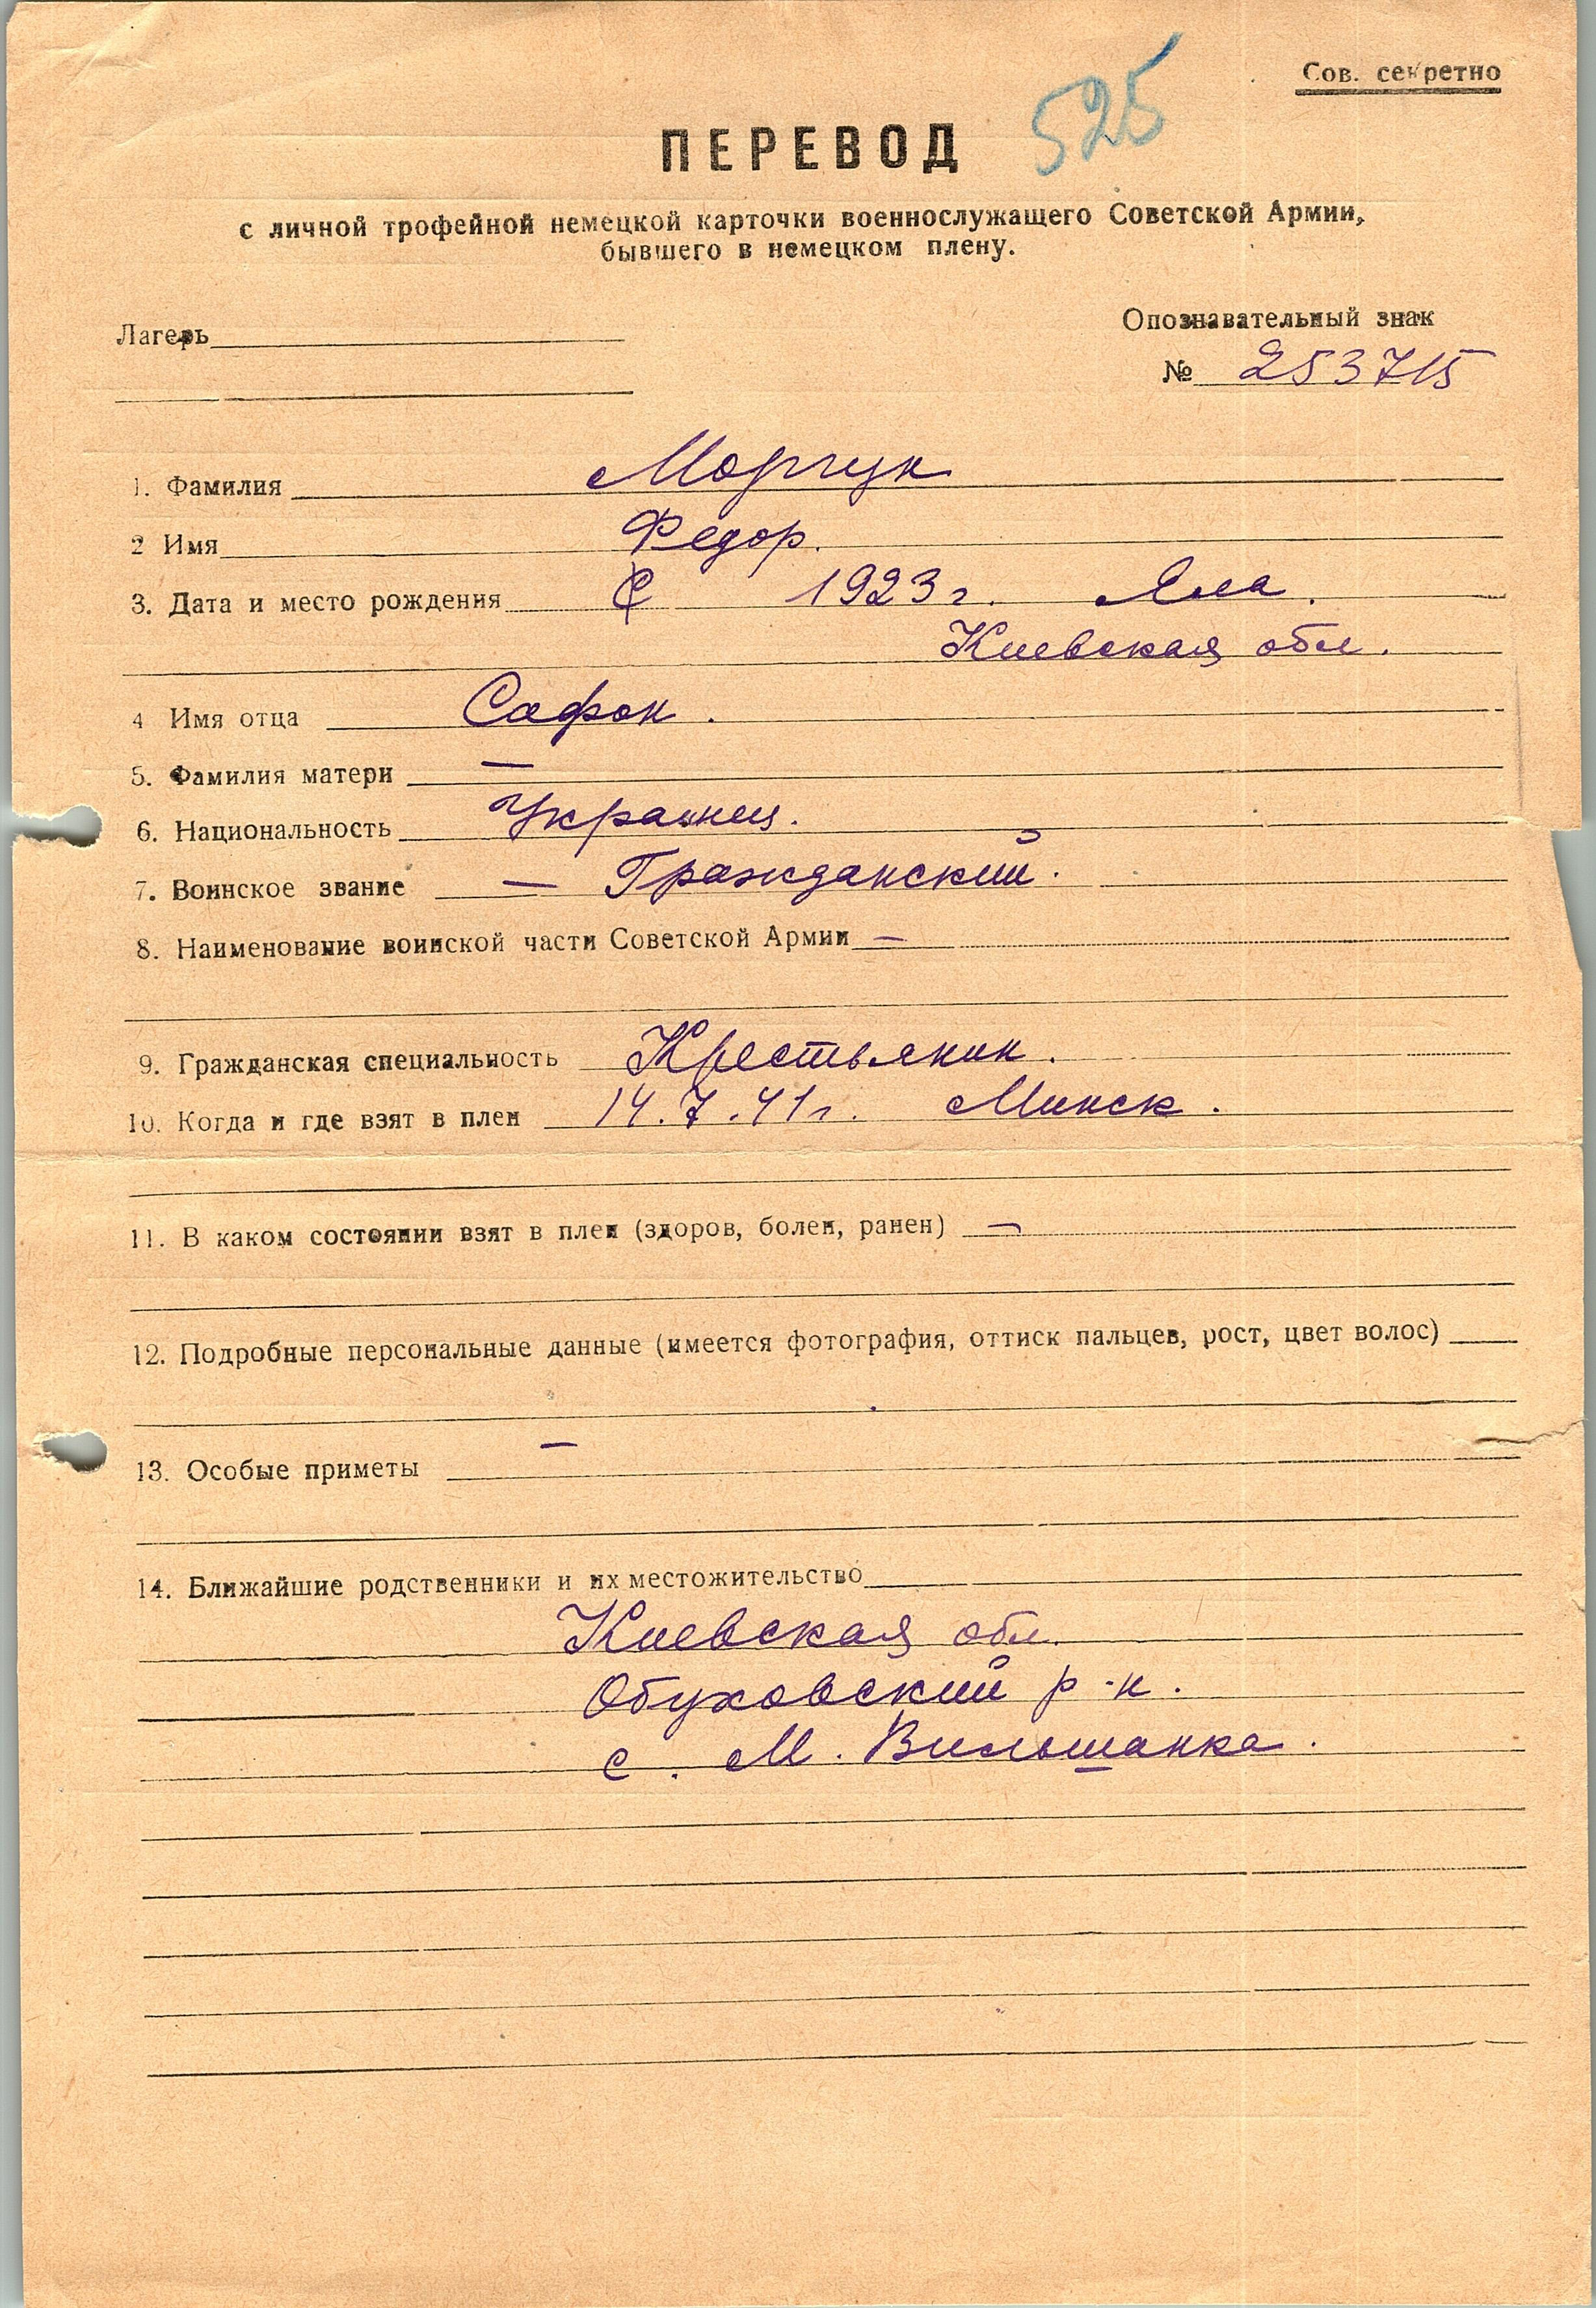 Сов. секретно
525
ПЕРЕВОД
с личной трофейной немецкой карточки военнослужащего Советской Армии,
бывшего в немецком плену.
Лагерь
Опознавательный знак
№ 253715
1. Фамилия Морчук
2 Имя Федор.
3. Дата и место рождения 1923 г.
Киевская обл.
4 Имя отца Сафон.
5. Фамилия матери —
6. Национальность Украинец.
7. Воинское звание — Гражданский.
8. Наименование воинской части Советской Армии —
9. Гражданская специальность Крестьянин.
10. Когда и где взят в плен 14.7.41 г. Минск.
11. В каком состоянии взят в плен (здоров, болен, ранен) —
12. Подробные персональные данные (имеется фотография, оттиск пальцев, рост, цвет волос)
13. Особые приметы —
14. Ближайшие родственники и их местожительство
Киевская обл.
Обуховский р-н.
с. М. Вильшанка.